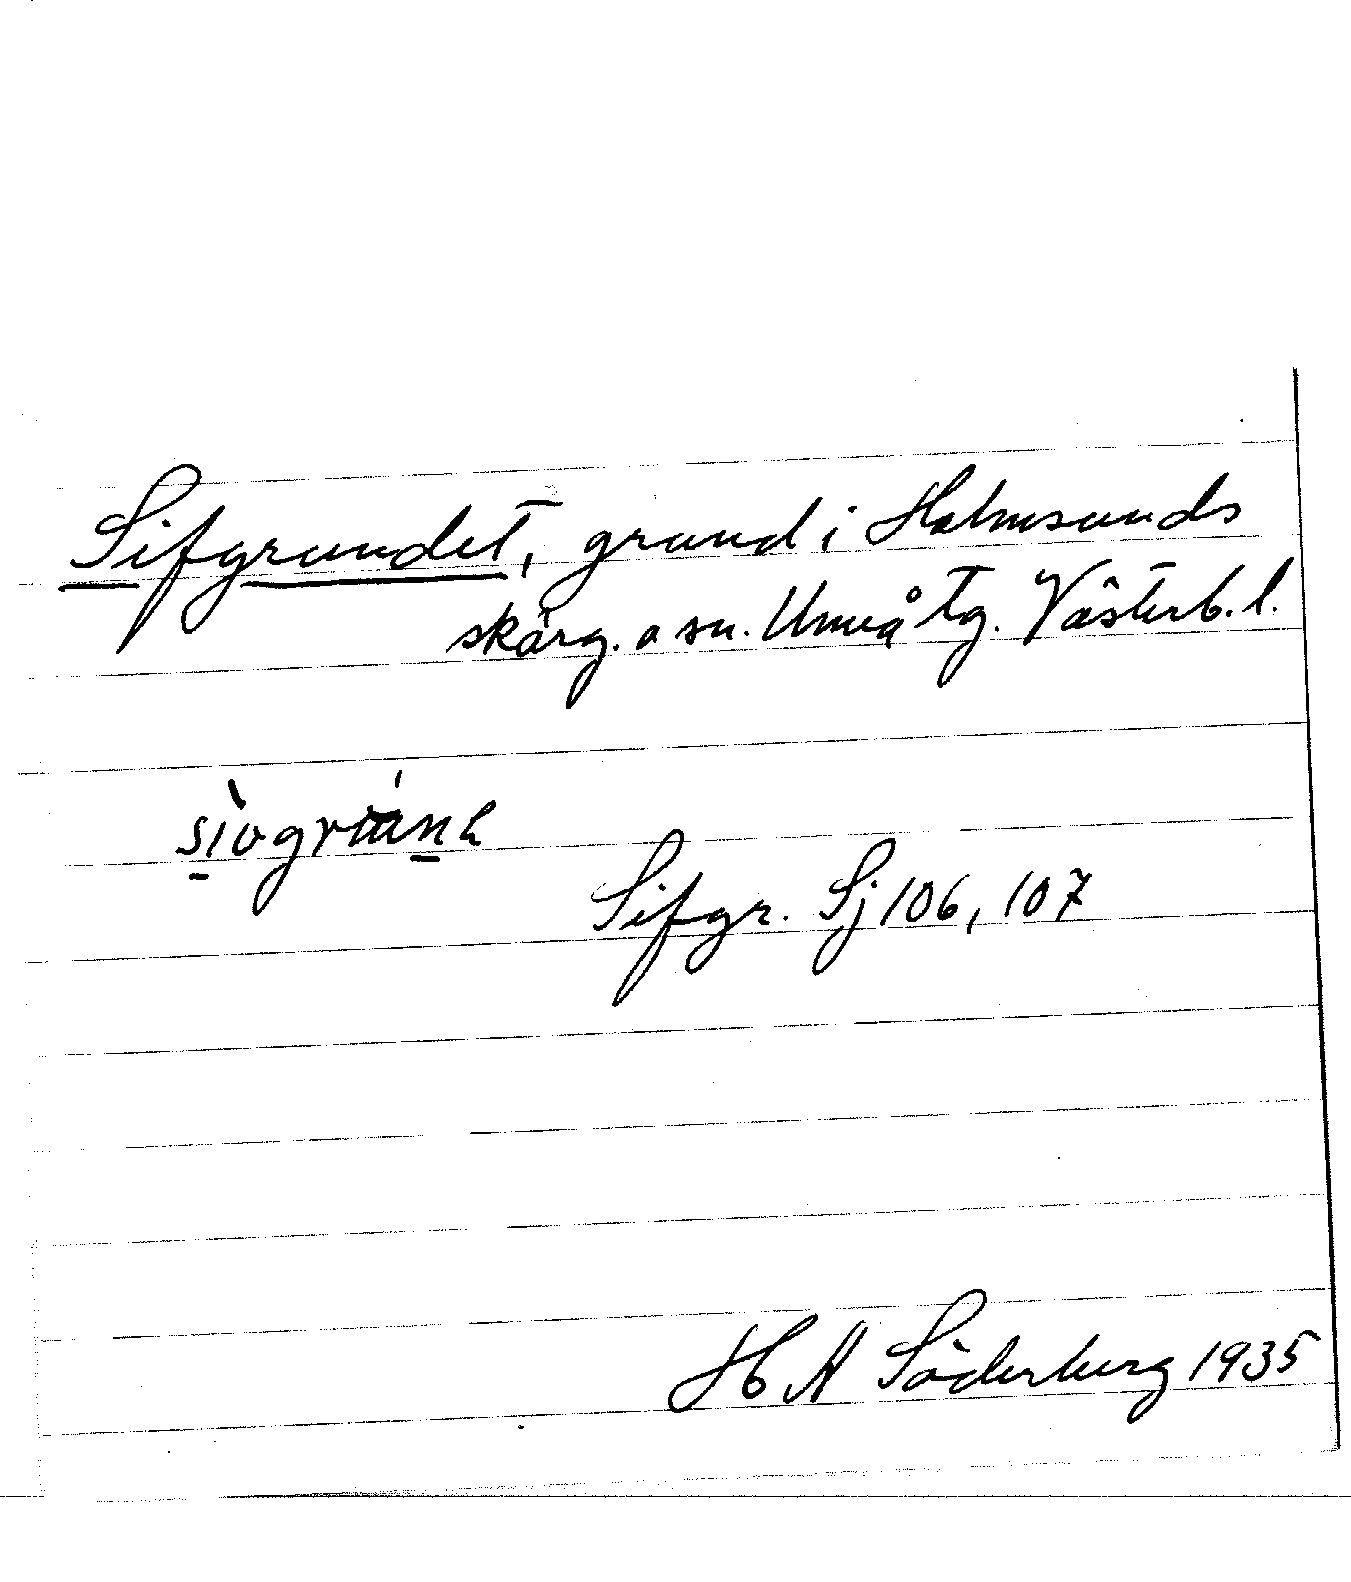 Sifgrundet, grund i Holmsunds
skärg. o sn. Umeå tg. Västerb. l.
Sifgr. Sj 106, 107
H A Söderberg 1935